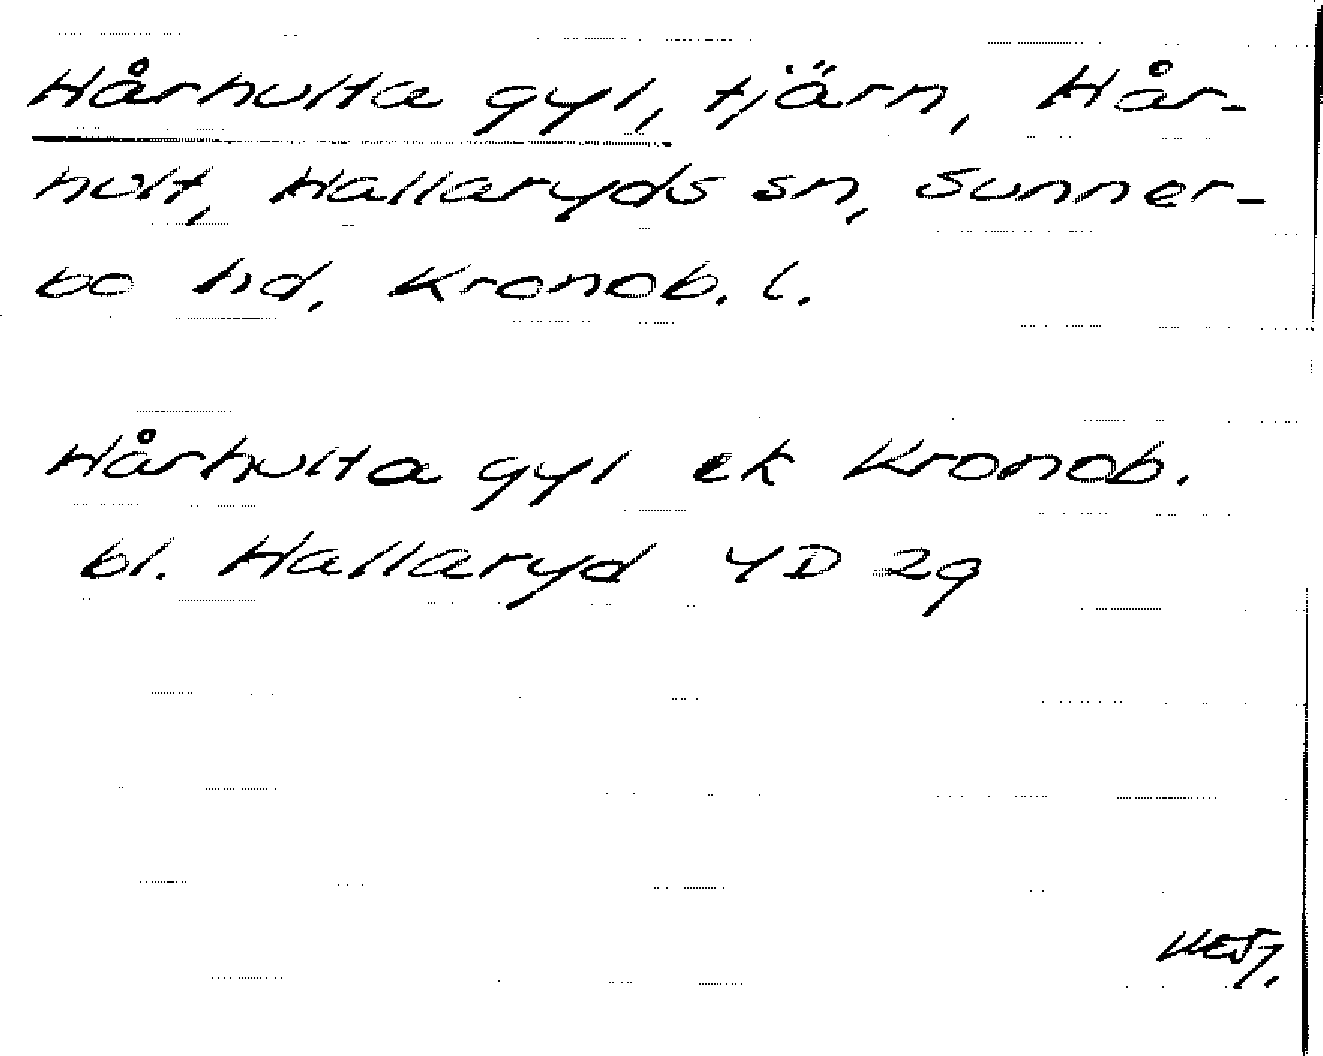 Hårhulta gyl, tjärn, Hår-
hult, Hallaryds sn, Sunner-
bo hd, Kronob. l.
Hårhulta gyl ek Kronob.
bl. Hallaryd 4D 2g